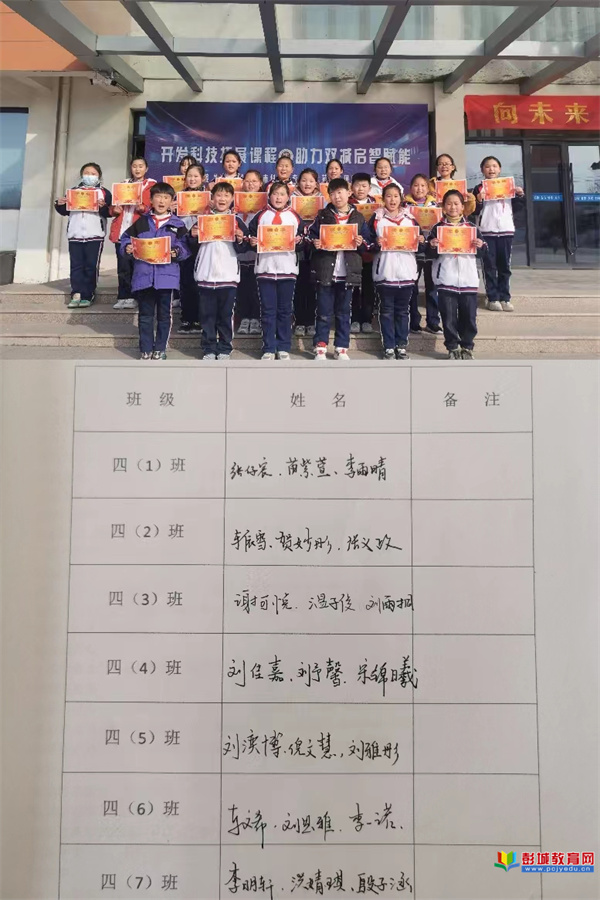 开发科技拓展课程 助力双减启智赋能
向未来
班级 姓名 备注
四（1）班 张仔宸、苗紫萱、李雨晴
四（2）班 贺妙彤、张义政
四（3）班 谢可悦、温子俊、刘雨桐
四（4）班 刘佳嘉、刘予馨、宋锦曦
四（5）班 刘滨博、倪文慧，刘雅彤
四（6）班 车文希、刘思雅、李一诺、
四（7）班 李明轩、洪婧琪、殷子涵
彭城教育网
www.pcjyedu.cn